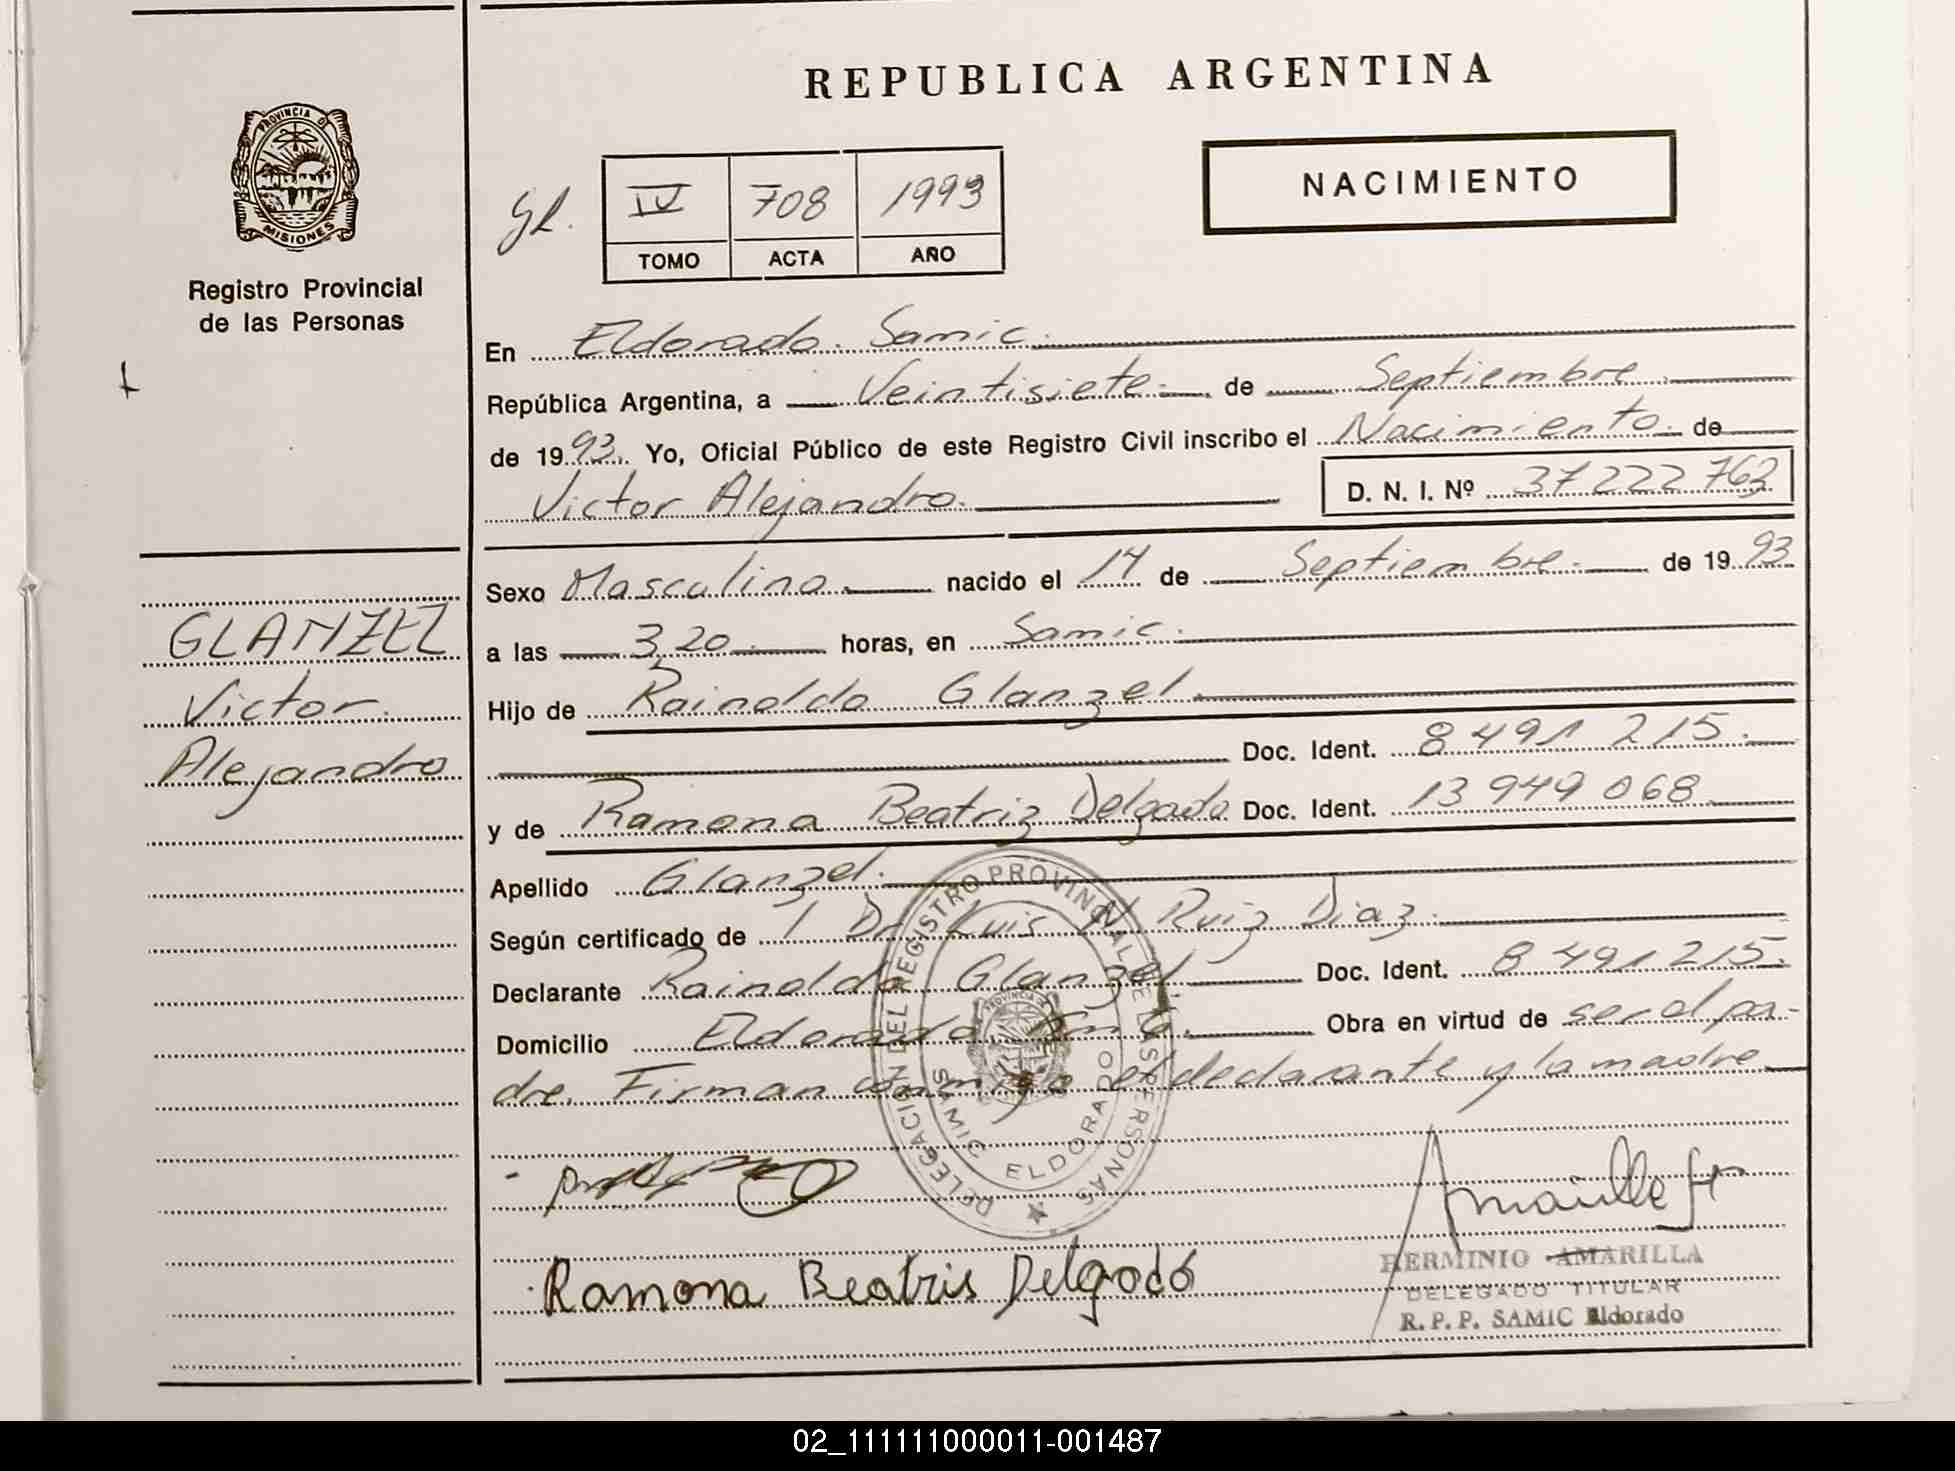 REPUBLICA ARGENTINA
NACIMIENTO
PROVINCIA D
MISIONES
Registro Provincial
de las Personas
GLANZEL
Victor
Alejandro
IV 708 1993
TOMO ACTA AÑO
En Eldorado. Samic.
República Argentina, a Veintisiete de Septiembre
de 1993. Yo, Oficial Público de este Registro Civil inscribo el Nacimiento de
Victor Alejandro. D. N. I. Nº 37 222 762
Sexo Masculino nacido el 14 de Septiembre de 1993
a las 3,20 horas, en Samic.
Hijo de Rainoldo Glanzel
Doc. Ident. 8 491 215.
y de Ramona Beatriz Delgado Doc. Ident. 13 949 068
Apellido Glanzel.
Según certificado de 1 Dr. Luis N Ruiz Diaz.
Declarante Rainoldo Glanzel Doc. Ident. 8 491 215.
Domicilio Eldorado Obra en virtud de ser el pa-
dre. Firman conmigo el declarante y la madre
DELEGACION DEL REGISTRO PROVINCIAL DE LAS PERSONAS
SAMIC ELDORADO
Ramona Beatris Delgado
HERMINIO AMARILLA
DELEGADO TITULAR
R. P. P. SAMIC Eldorado
02_111111000011-001487